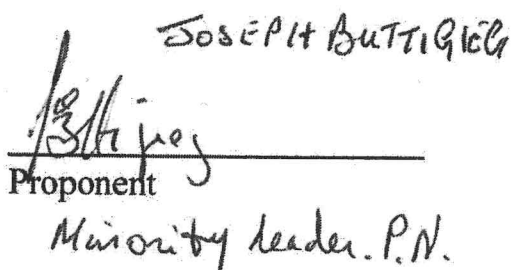 JOSEPH BUTTIGIEG
Proponent
Minority Leader. P.N.